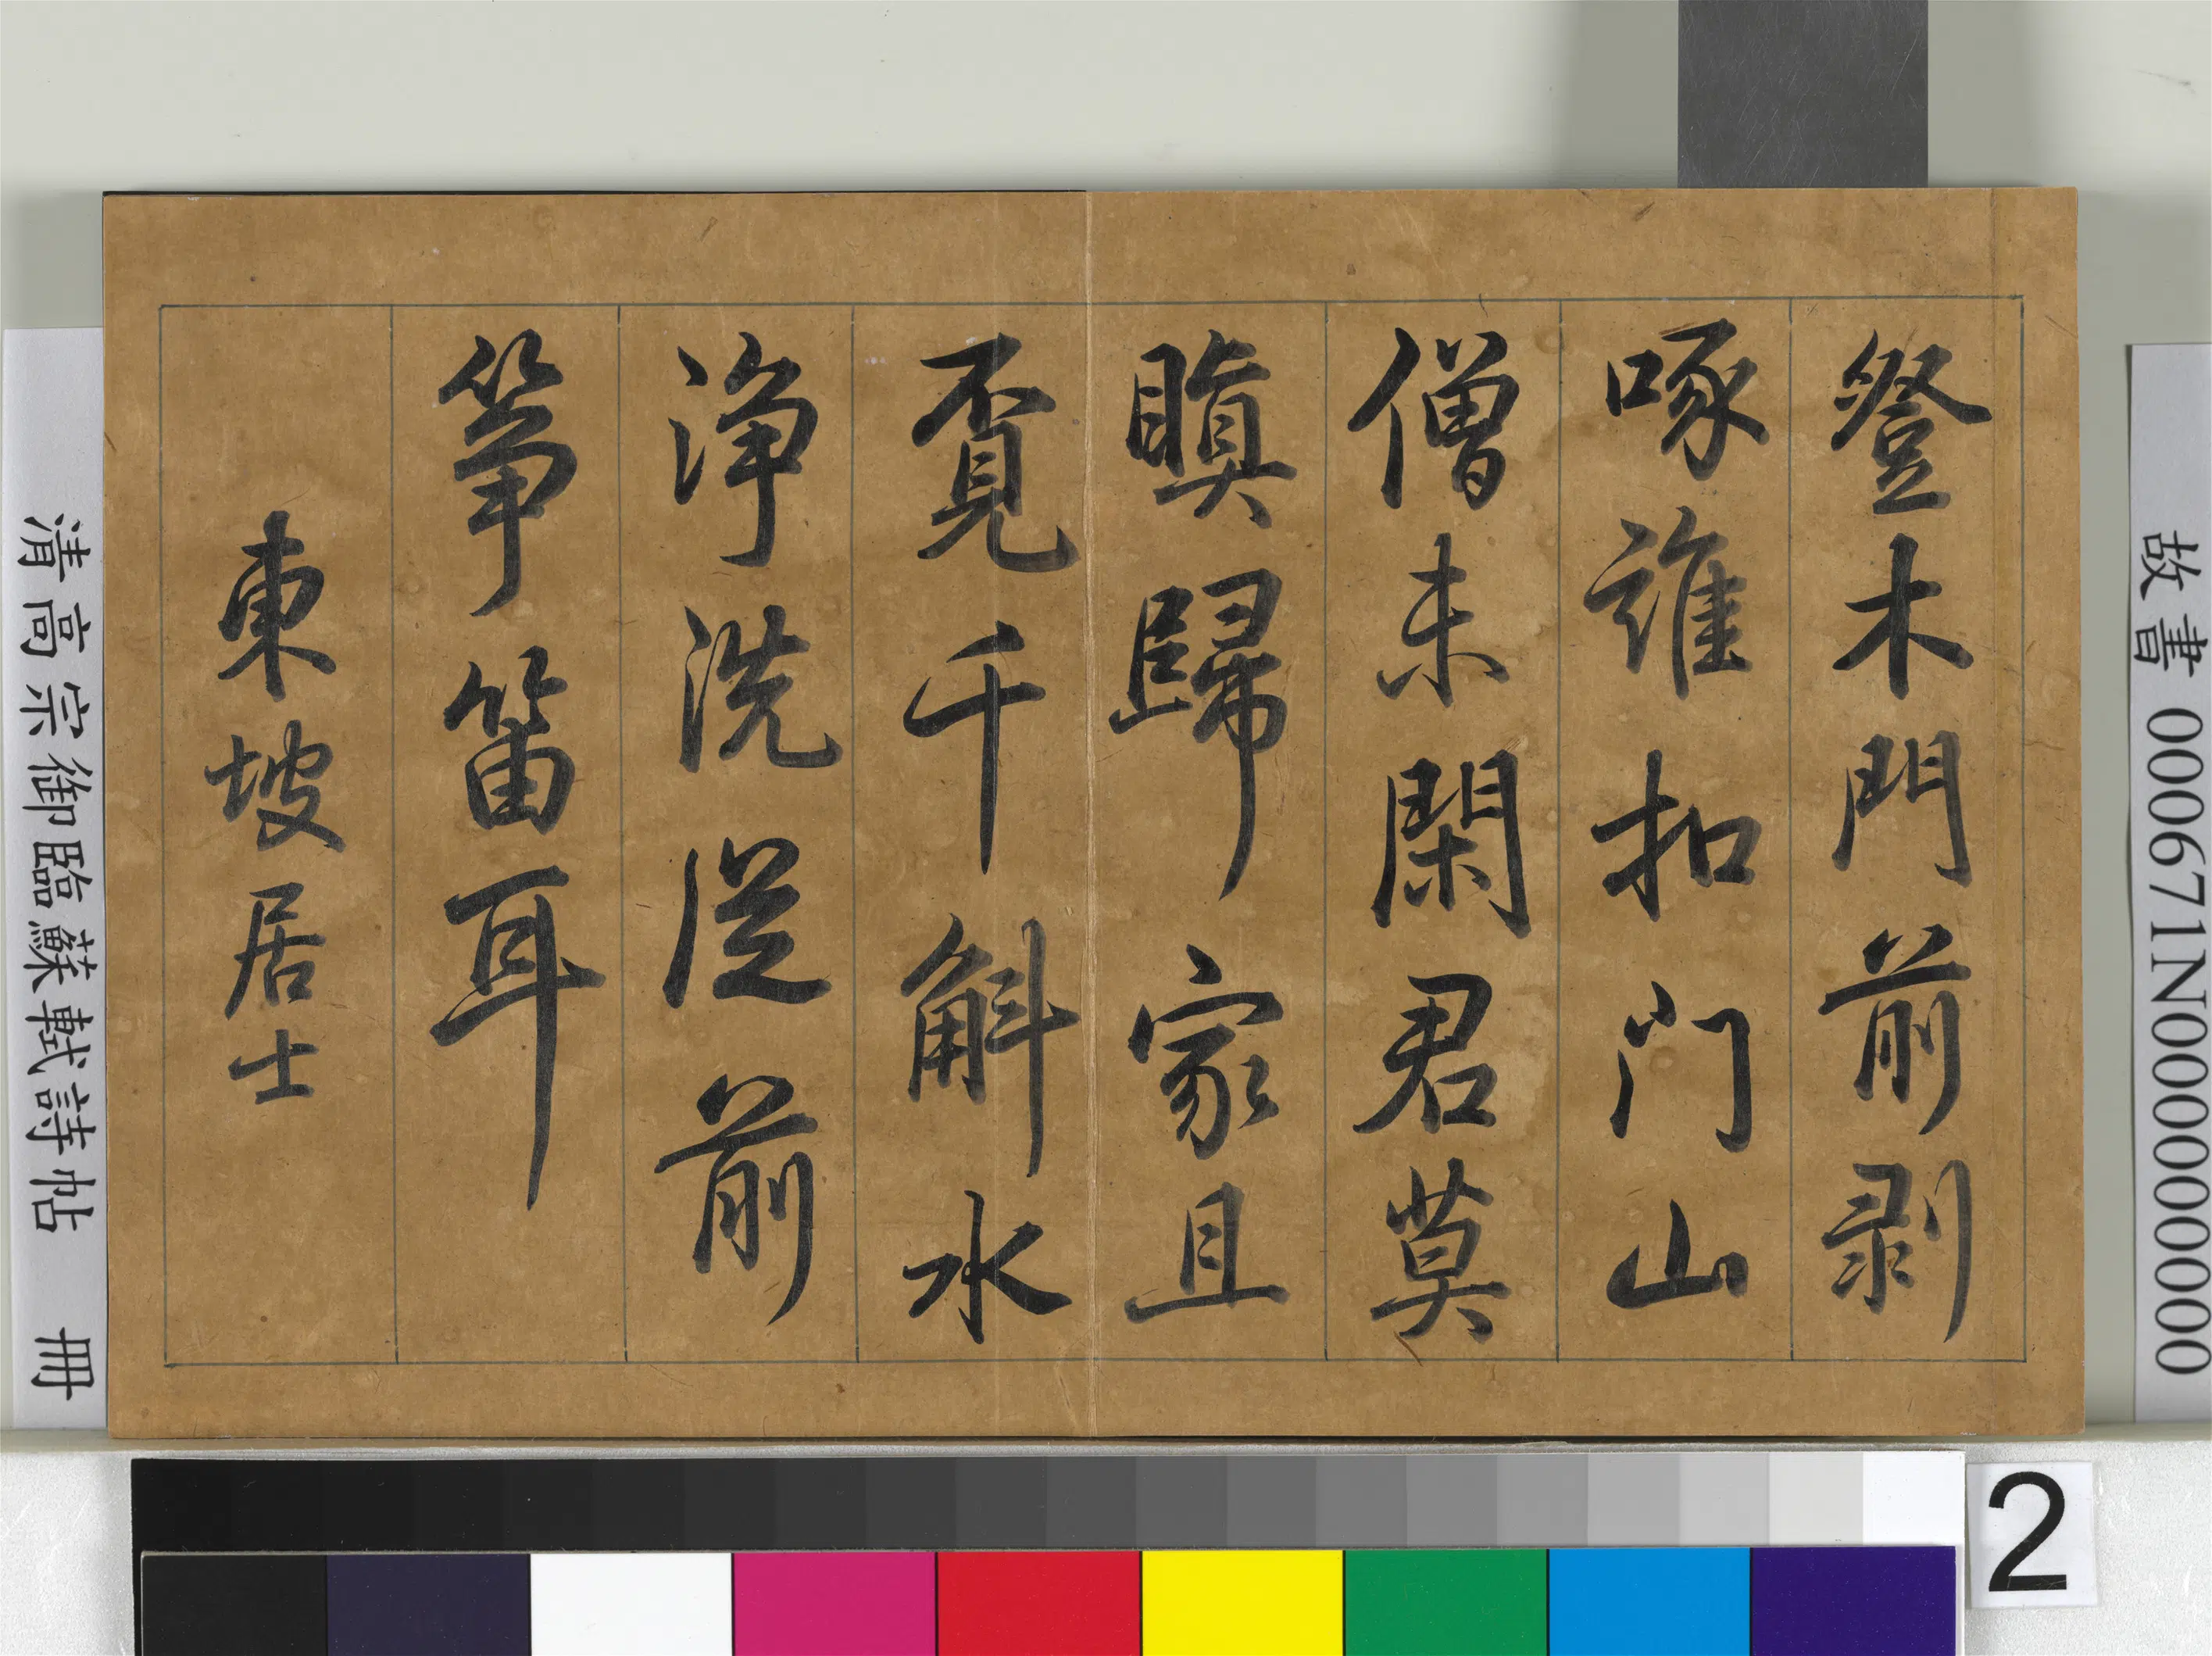 故書 000671N000000000
登木門前剥
啄誰扣门山
僧未閑君莫
瞋歸家且
覔千斛水
淨洗從前
筝笛耳
東坡居士
清高宗御臨蘇軾詩帖 冊
2